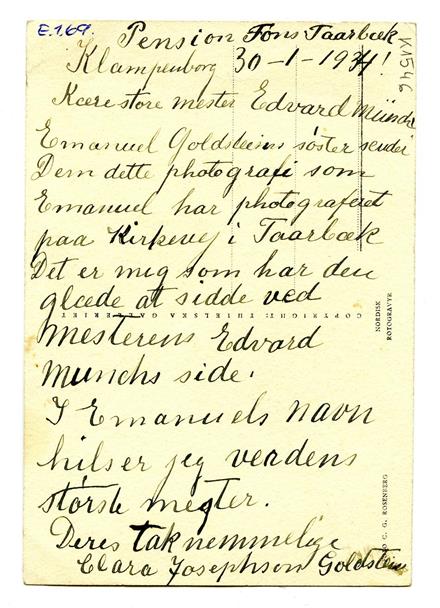 E.1.69.
Pension Fons Taarbæk
Klampenborg 30-1-1934!
K1546
Kære store mester Edvard Münch
Emanuel Goldsteins søster sender
Dem dette photografi som
Emanuel har photograferet
paa Kirkevej i Taarbæk
Det er mig som har den
glæde at sidde ved
COPYRIGHT: THIELSKA GALLERIET
NORDISK
ROTOGRAVYR
mesterens Edvard
Munchs side.
I Emanuels navn
hilser jeg verdens
störste mester.
C. G. ROSENBERG
Deres taknemmelige
Clara Josephson Goldstein